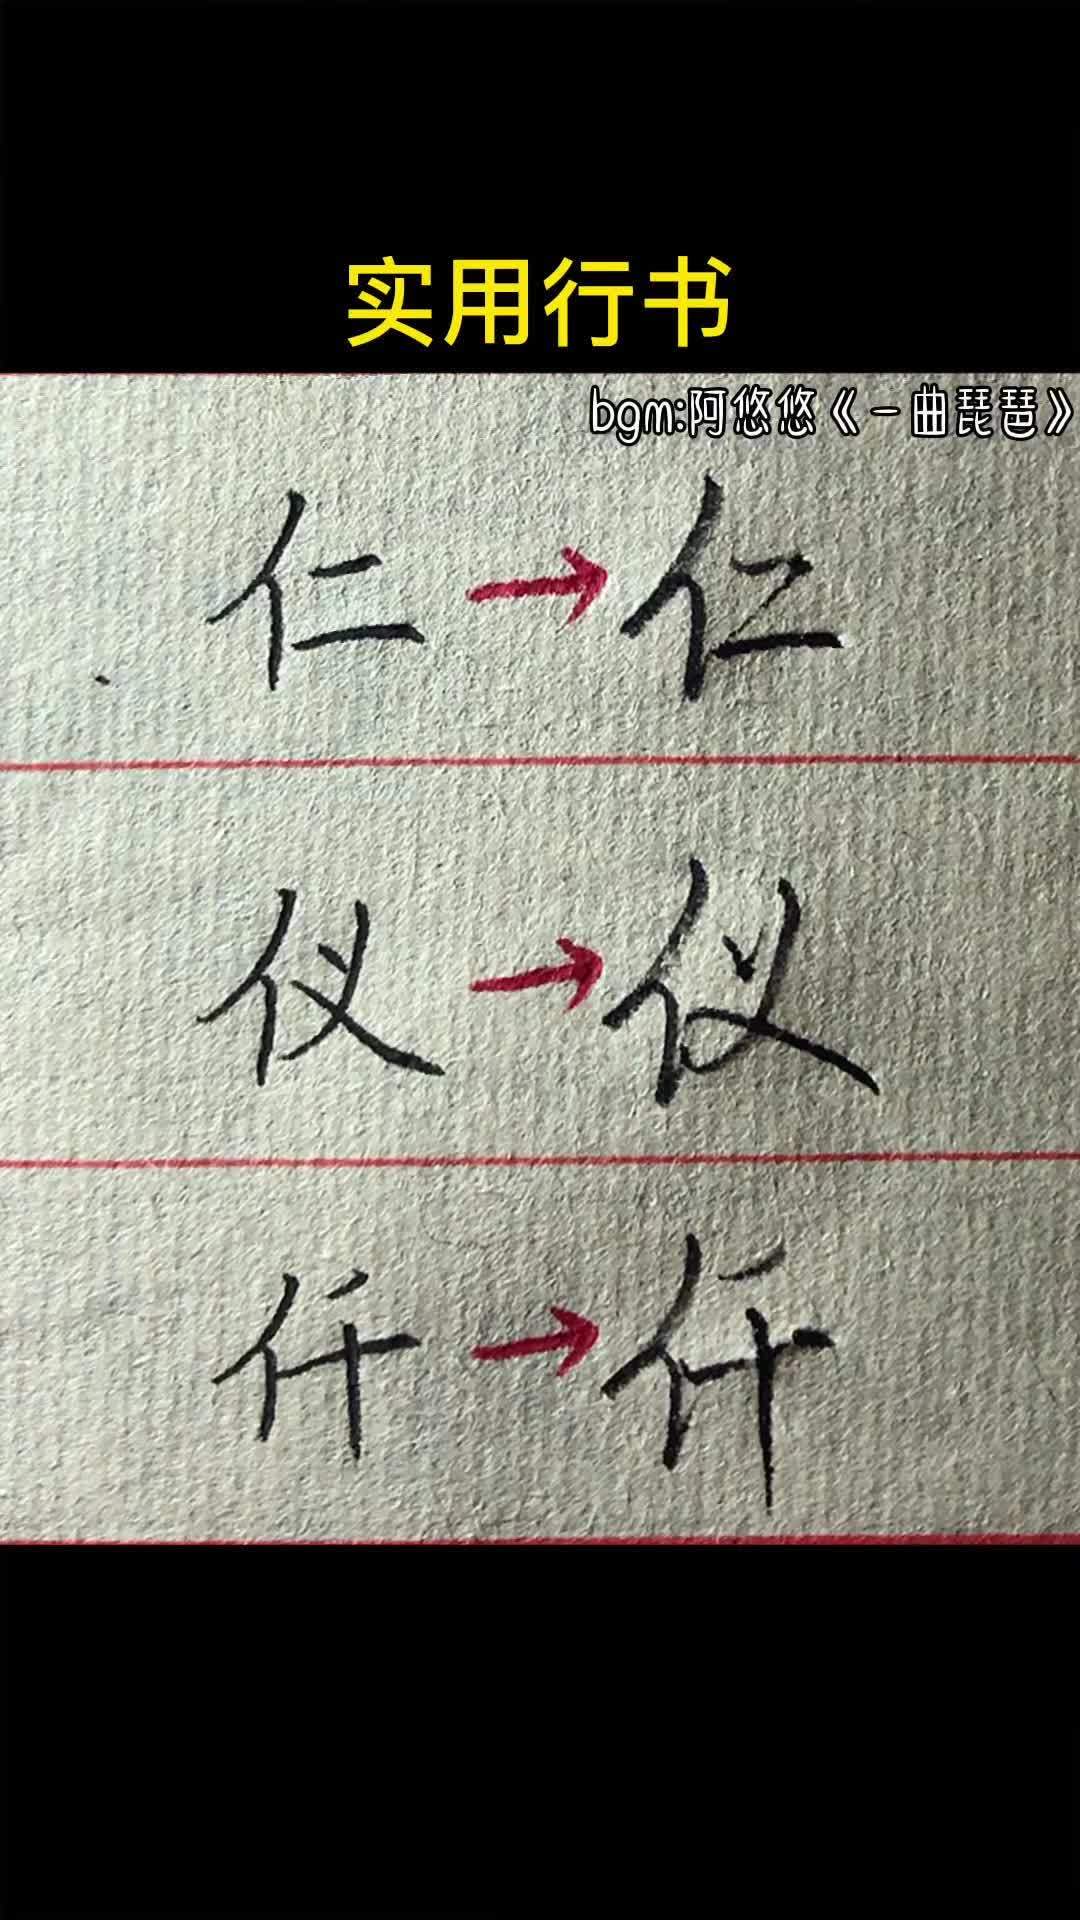 实用行书
bgm:阿悠悠《一曲琵琶》
仁→仁
仪→仪
仟→仟